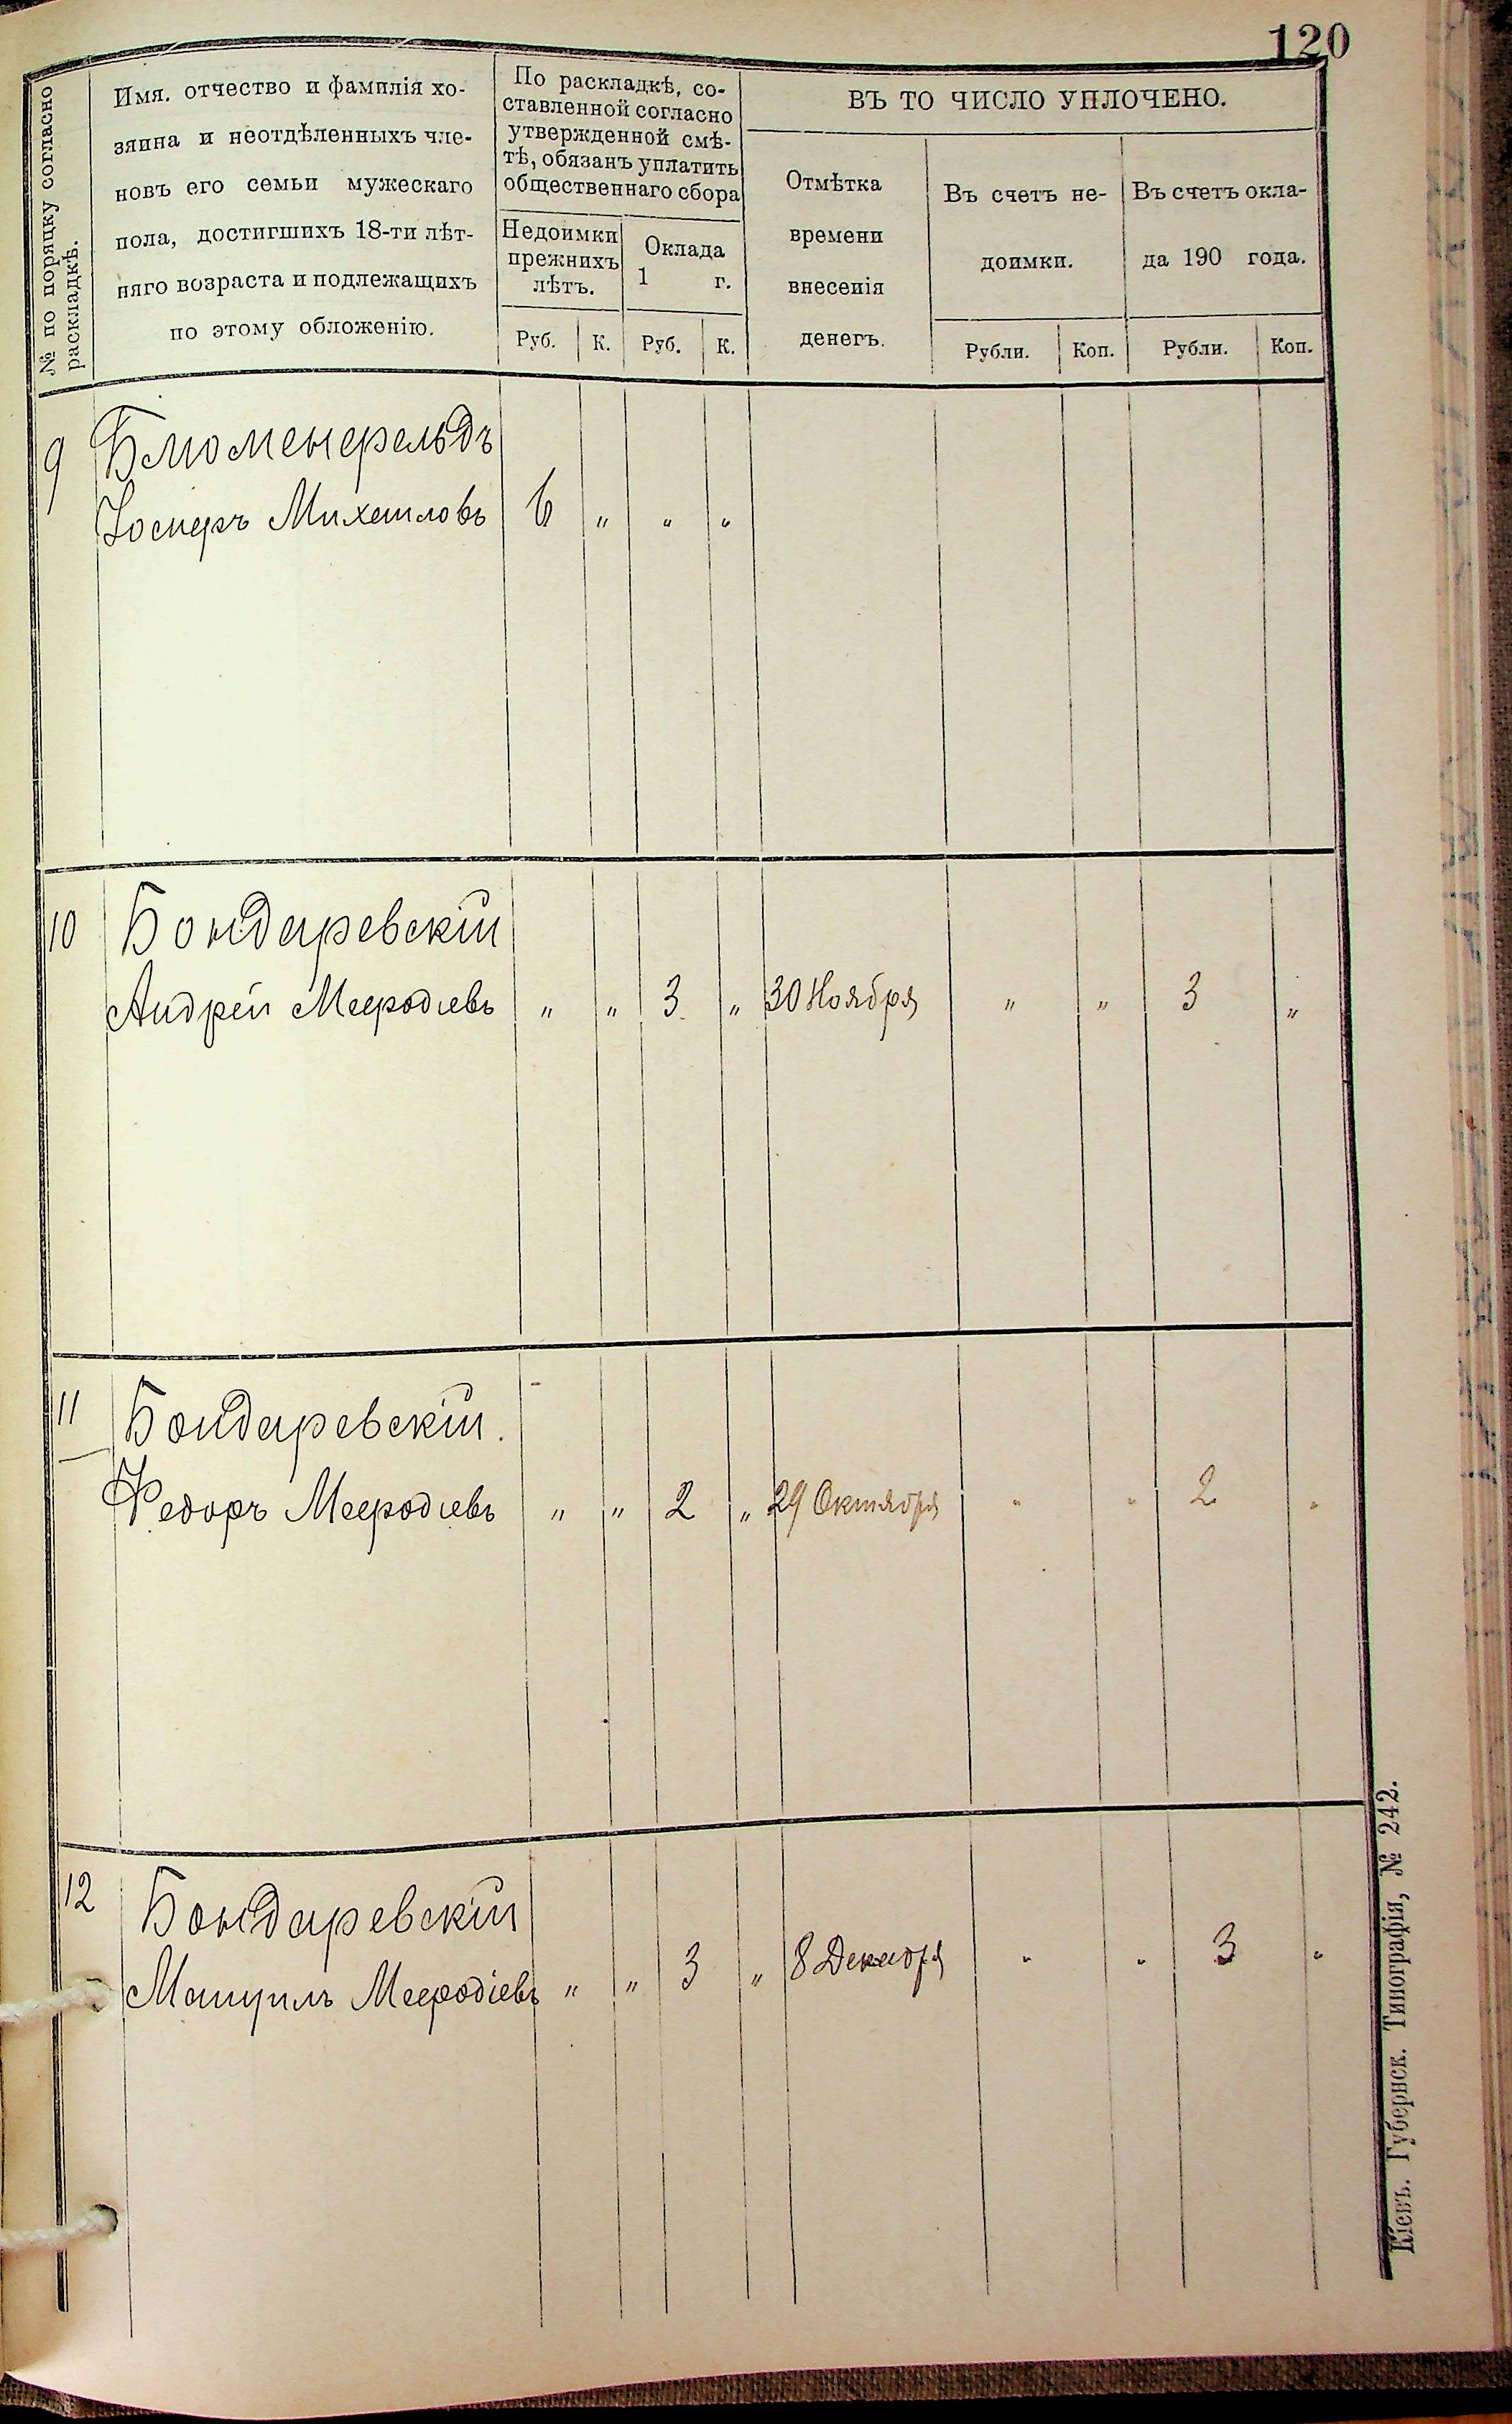 120
№ по порядку согласно
раскладкѣ.
Имя, отчество и фамилія хо-
зяина и неотдѣленныхъ чле-
новъ его семьи мужескаго
пола, достигшихъ 18-ти лѣт-
няго возраста и подлежащихъ
по этому обложенію.
По раскладкѣ, со-
ставленной согласно
утвержденной смѣ-
тѣ, обязанъ уплатить
общественнаго сбора
Недоимки
прежнихъ
лѣтъ.
Оклада
1 г.
Руб. К. Руб. К.
ВЪ ТО ЧИСЛО УПЛОЧЕНО.
Отмѣтка
времени
внесенія
денегъ.
Въ счетъ не-
доимки.
Въ счетъ окла-
да 190 года.
Рубли. Коп. Рубли. Коп.
9 Блюменфельдъ
Іосифъ Михаиловъ 6 „ „ „
10 Бондаревскій
Андрей Мефодіевъ „ „ 3 „ 30 Ноября „ „ 3 „
11 Бондаревскій.
Федоръ Мефодіевъ „ „ 2 „ 29 Октября „ „ 2 „
12 Бондаревскій
Мануилъ Мефодіевъ „ „ 3 „ 8 Декабря „ „ 3 „
Кіевъ. Губернск. Типографія, № 242.